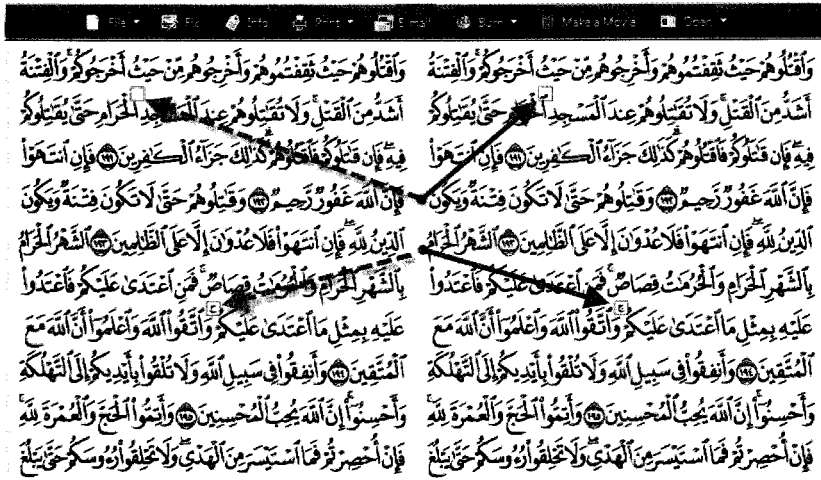 File Fix Info Print E-mail Burn Make a Movie Open
وَٱقْتُلُوهُمْ حَيْثُ ثَقِفْتُمُوهُمْ وَأَخْرِجُوهُم مِّنْ حَيْثُ أَخْرَجُوكُمْ ۚ وَٱلْفِتْنَةُ
أَشَدُّ مِنَ ٱلْقَتْلِ ۚ وَلَا تُقَٰتِلُوهُمْ عِندَ ٱلْمَسْجِدِ ٱلْحَرَامِ حَتَّىٰ يُقَٰتِلُوكُمْ
فِيهِ ۖ فَإِن قَٰتَلُوكُمْ فَٱقْتُلُوهُمْ ۗ كَذَٰلِكَ جَزَآءُ ٱلْكَٰفِرِينَ ١٩١ فَإِنِ ٱنتَهَوْا۟
فَإِنَّ ٱللَّهَ غَفُورٌ رَّحِيمٌ ١٩٢ وَقَٰتِلُوهُمْ حَتَّىٰ لَا تَكُونَ فِتْنَةٌ وَيَكُونَ
ٱلدِّينُ لِلَّهِ ۖ فَإِنِ ٱنتَهَوْا۟ فَلَا عُدْوَٰنَ إِلَّا عَلَى ٱلظَّٰلِمِينَ ١٩٣ ٱلشَّهْرُ ٱلْحَرَامُ
بِٱلشَّهْرِ ٱلْحَرَامِ وَٱلْحُرُمَٰتُ قِصَاصٌ ۚ فَمَنِ ٱعْتَدَىٰ عَلَيْكُمْ فَٱعْتَدُوا۟
ج
عَلَيْهِ بِمِثْلِ مَا ٱعْتَدَىٰ عَلَيْكُمْ ۚ وَٱتَّقُوا۟ ٱللَّهَ وَٱعْلَمُوٓا۟ أَنَّ ٱللَّهَ مَعَ
ٱلْمُتَّقِينَ ١٩٤ وَأَنفِقُوا۟ فِى سَبِيلِ ٱللَّهِ وَلَا تُلْقُوا۟ بِأَيْدِيكُمْ إِلَى ٱلتَّهْلُكَةِ ۛ
وَأَحْسِنُوٓا۟ ۛ إِنَّ ٱللَّهَ يُحِبُّ ٱلْمُحْسِنِينَ ١٩٥ وَأَتِمُّوا۟ ٱلْحَجَّ وَٱلْعُمْرَةَ لِلَّهِ ۚ
فَإِنْ أُحْصِرْتُمْ فَمَا ٱسْتَيْسَرَ مِنَ ٱلْهَدْىِ ۖ وَلَا تَحْلِقُوا۟ رُءُوسَكُمْ حَتَّىٰ يَبْلُغَ
وَٱقْتُلُوهُمْ حَيْثُ ثَقِفْتُمُوهُمْ وَأَخْرِجُوهُم مِّنْ حَيْثُ أَخْرَجُوكُمْ ۚ وَٱلْفِتْنَةُ
أَشَدُّ مِنَ ٱلْقَتْلِ ۚ وَلَا تُقَٰتِلُوهُمْ عِندَ ٱلْمَسْجِدِ ٱلْحَرَامِ حَتَّىٰ يُقَٰتِلُوكُمْ
فِيهِ ۖ فَإِن قَٰتَلُوكُمْ فَٱقْتُلُوهُمْ ۗ كَذَٰلِكَ جَزَآءُ ٱلْكَٰفِرِينَ ١٩١ فَإِنِ ٱنتَهَوْا۟
فَإِنَّ ٱللَّهَ غَفُورٌ رَّحِيمٌ ١٩٢ وَقَٰتِلُوهُمْ حَتَّىٰ لَا تَكُونَ فِتْنَةٌ وَيَكُونَ
ٱلدِّينُ لِلَّهِ ۖ فَإِنِ ٱنتَهَوْا۟ فَلَا عُدْوَٰنَ إِلَّا عَلَى ٱلظَّٰلِمِينَ ١٩٣ ٱلشَّهْرُ ٱلْحَرَامُ
بِٱلشَّهْرِ ٱلْحَرَامِ وَٱلْحُرُمَٰتُ قِصَاصٌ ۚ فَمَنِ ٱعْتَدَىٰ عَلَيْكُمْ فَٱعْتَدُوا۟
ج
عَلَيْهِ بِمِثْلِ مَا ٱعْتَدَىٰ عَلَيْكُمْ ۚ وَٱتَّقُوا۟ ٱللَّهَ وَٱعْلَمُوٓا۟ أَنَّ ٱللَّهَ مَعَ
ٱلْمُتَّقِينَ ١٩٤ وَأَنفِقُوا۟ فِى سَبِيلِ ٱللَّهِ وَلَا تُلْقُوا۟ بِأَيْدِيكُمْ إِلَى ٱلتَّهْلُكَةِ ۛ
وَأَحْسِنُوٓا۟ ۛ إِنَّ ٱللَّهَ يُحِبُّ ٱلْمُحْسِنِينَ ١٩٥ وَأَتِمُّوا۟ ٱلْحَجَّ وَٱلْعُمْرَةَ لِلَّهِ ۚ
فَإِنْ أُحْصِرْتُمْ فَمَا ٱسْتَيْسَرَ مِنَ ٱلْهَدْىِ ۖ وَلَا تَحْلِقُوا۟ رُءُوسَكُمْ حَتَّىٰ يَبْلُغَ